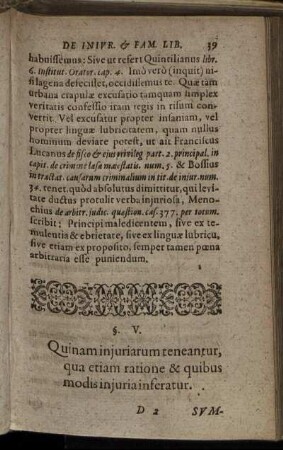 DE INIVR. & FAM. LIB. 39
habuissemus: Sive ut refert Quintilianus libr.
6. Institut. Orator. cap. 4. Imò verò (inquit) ni-
si lagena defecisset, occidissemus te. Quæ tam
urbana crapulæ excusatio tamquam simplex
veritatis confessio iram regis in risum convertit.
Vel excusatur propter insaniam, vel
propter linguæ lubricitatem, quam nullus
hominum deviare potest, ut ait Franciscus
Lucanus de fisco & ejus privileg part. 2. principal. in
capit. de crimine læsæ maiestatis. num. 5. & Bossius
in tractat. causarum criminalium in tit. de injur. num.
34. tenet. quòd absolutus dimittitur, qui levitate
ductus protulit verba injuriosa, Menochius
de arbitr. judic. quæstion. cas. 377. per totum.
scribit; Principi maledicentem, sive ex temulentia
& ebrietate, sive ex linguæ lubricu,
sive etiam ex proposito, semper tamen pœna
arbitraria esse puniendum.
§. V.
Quinam injuriarum teneantur,
qua etiam ratione & quibus
modis injuria inferatur.
D 2 SVM-